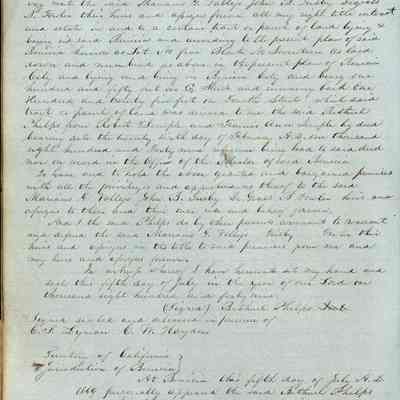 unto the said Mariano G. Vallejo John B. Frisby
& Foster their heirs and assigns forever all my right title interest
and estate in and to a certain tract or parcel of land lying &
being in said Benicia and according to the present plan of said
Benicia known as Lot No five Block No Seventeen as laid
down and numbered as above in the present plan of Benicia
City and lying and being in Benicia City and being one
hundred and fifty feet on Street and running back One
Hundred and twenty five feet on Fourth Street which said
tract or parcel of land was deeded to me the said Bethuel
Phelps from Robert Semple and Frances Ann Semple by deed
bearing date the twenty eighth day of February A.D. one thousand
eight hundred and forty nine reference being had to said deed
now on record in the Office of the Alcalde of said Benicia
To have and to hold the above granted and bargained premises
with all the privileges and appurtenances thereof to the said
Mariano G. Vallejo John B. Frisby & Foster heirs and
assigns to them and their own use and behoof forever
And I the said Phelps do by these presents covenant to warrant
and defend the said Mariano G. Vallejo Frisby Foster their
heirs and assigns in the title to said premises from me and
my heirs and assigns forever
In witness whereof I have hereunto set my hand and
seal this fifth day of July in the year of our Lord one
thousand eight hundred and forty nine
(Signed) Bethuel Phelps Seal
Signed sealed and delivered in presence of
C. E. Lyman C. W. Hayden
Territory of California
Jurisdiction of Benicia
At Benicia this fifth day of July A.D.
1849 personally appeared the said Bethuel Phelps